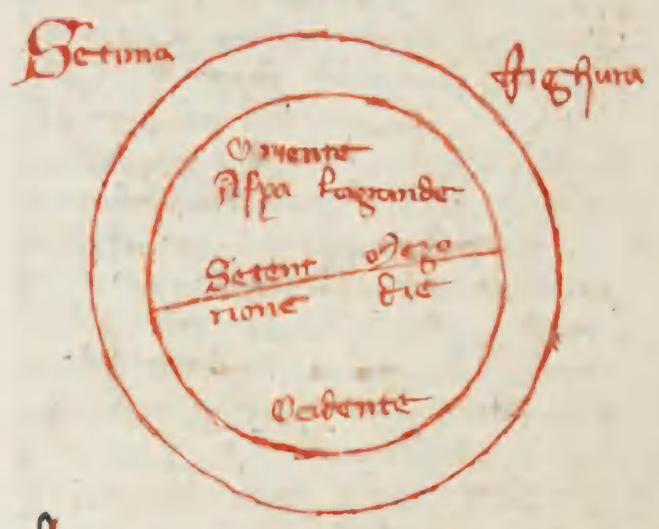 Setima fighura
Oriente
Aspa lagrande
Setent mezo
rione die
Ocidente